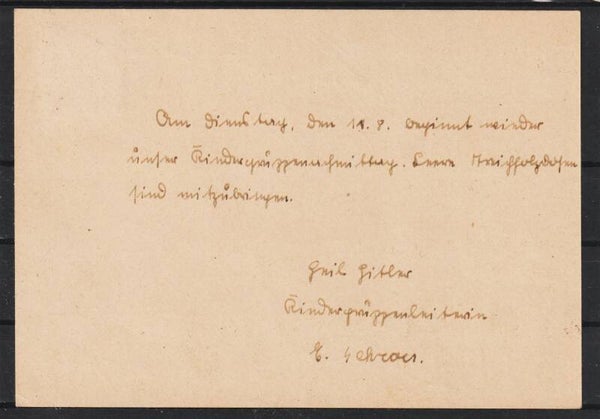 Am Dienstag, den 11. 8. beginnt wieder
unser Kindergruppennachmittag. Leere Streichholzdosen
sind mitzubringen.
Heil Hitler
Kindergruppenleiterin
E.